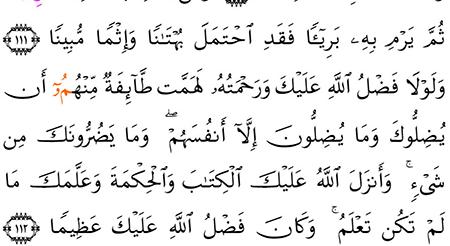 ثُمَّ يَرْمِ بِهِۦ بَرِيٓـًٔا فَقَدِ اِحْتَمَلَ بُهْتَٰنًا وَإِثْمًا مُّبِينًا ١١١
وَلَوْلَا فَضْلُ اُللَّهِ عَلَيْكَ وَرَحْمَتُهُۥ لَهَمَّت طَّآئِفَةٌ مِّنْهُمُۥٓ أَن
يُضِلُّوكَ وَمَا يُضِلُّونَ إِلَّآ أَنفُسَهُمْۖ وَمَا يَضُرُّونَكَ مِن
شَىْءٍۚ وَأَنزَلَ اَللَّهُ عَلَيْكَ اَلْكِتَٰبَ وَالْحِكْمَةَ وَعَلَّمَكَ مَا
لَمْ تَكُن تَعْلَمُۚ وَكَانَ فَضْلُ اُللَّهِ عَلَيْكَ عَظِيمًا ١١٢